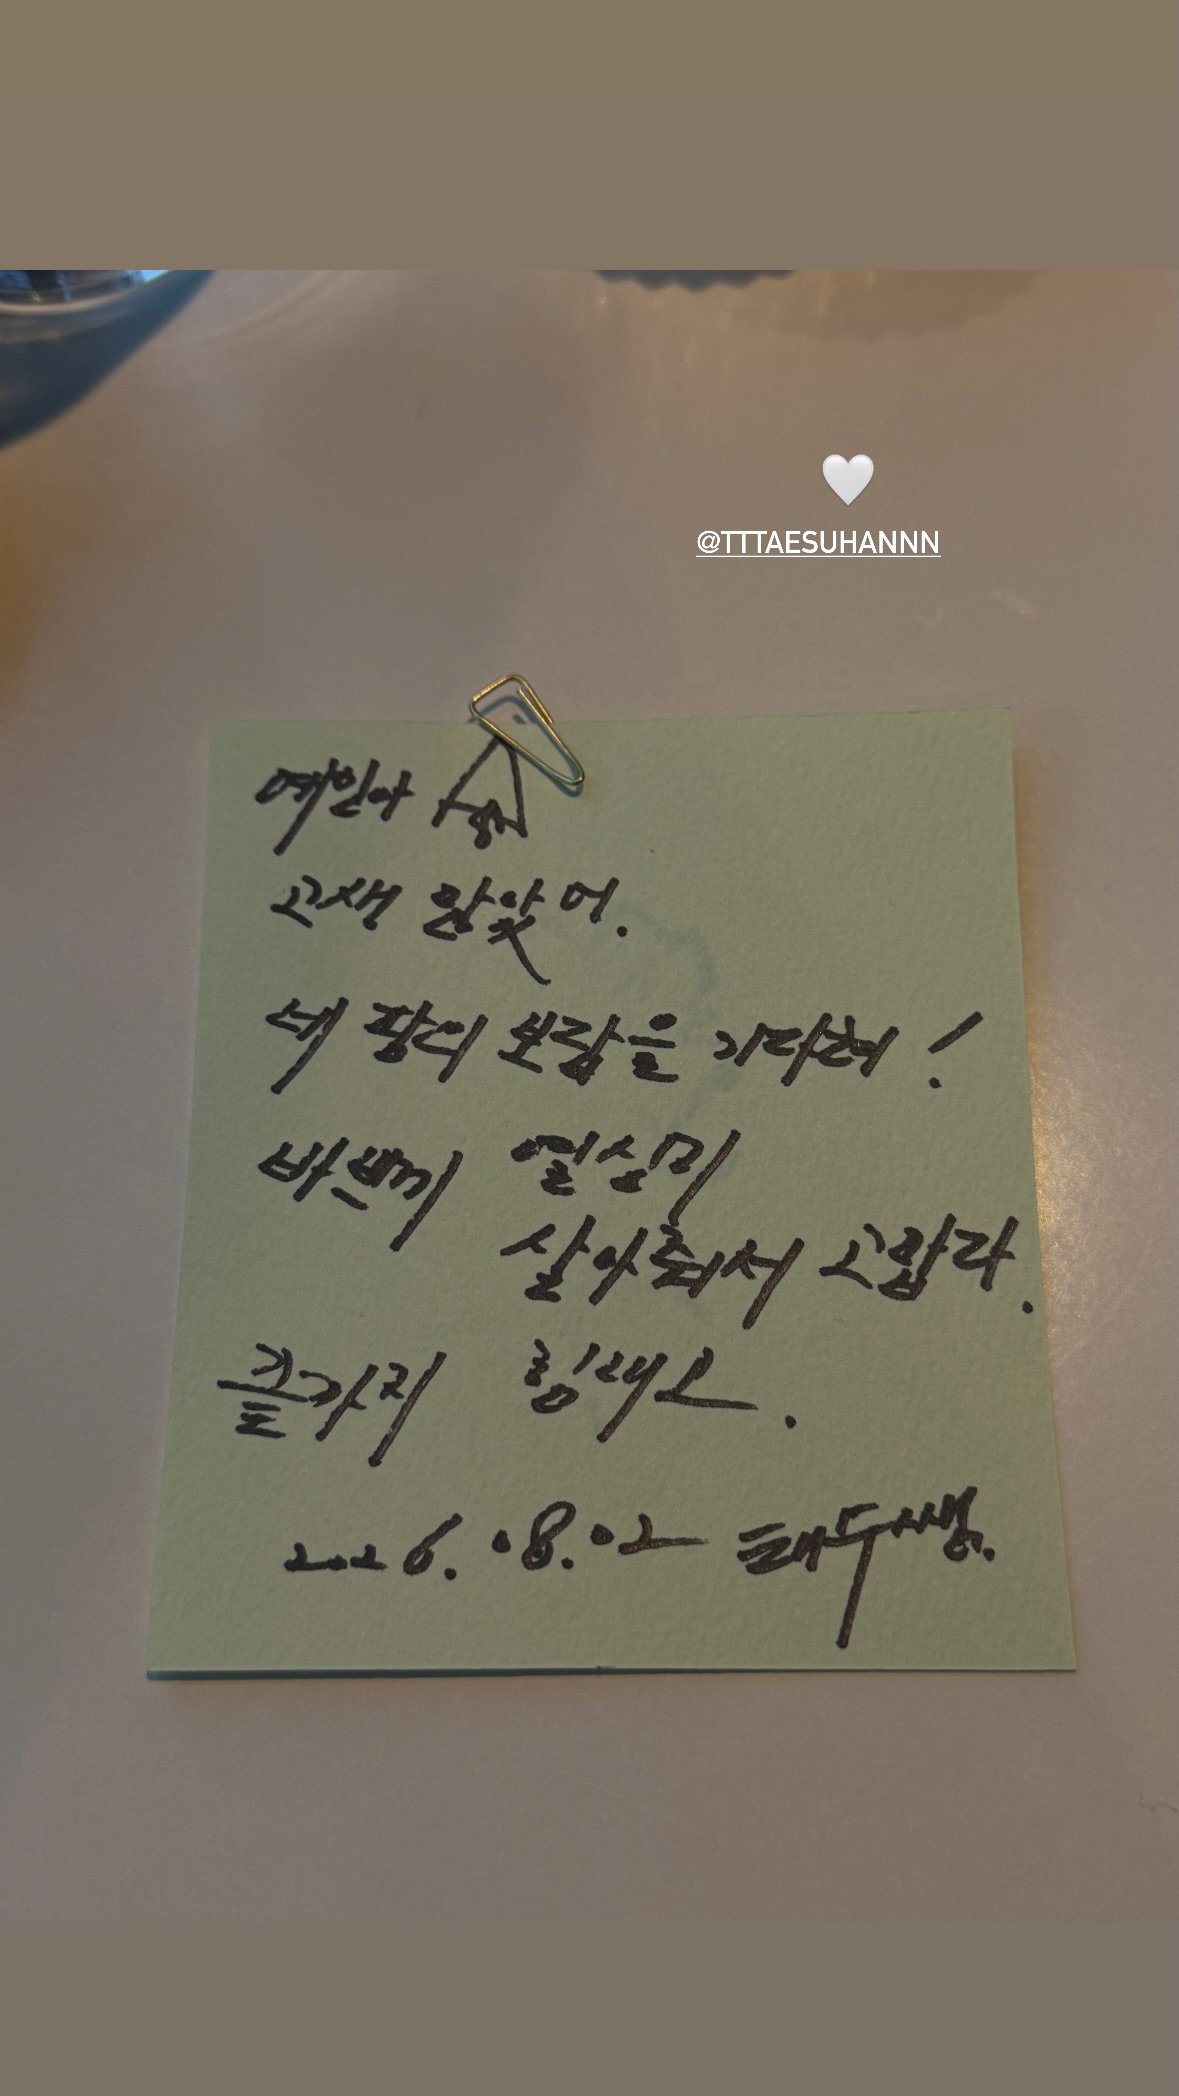 @TTTAESUHANNN
예인아
고생 많았어.
네 땀의 보람을 기다려!
바쁘게 열심히
살아줘서 고맙다.
끝까지 힘내고.
2026.08.02 태수쌤.